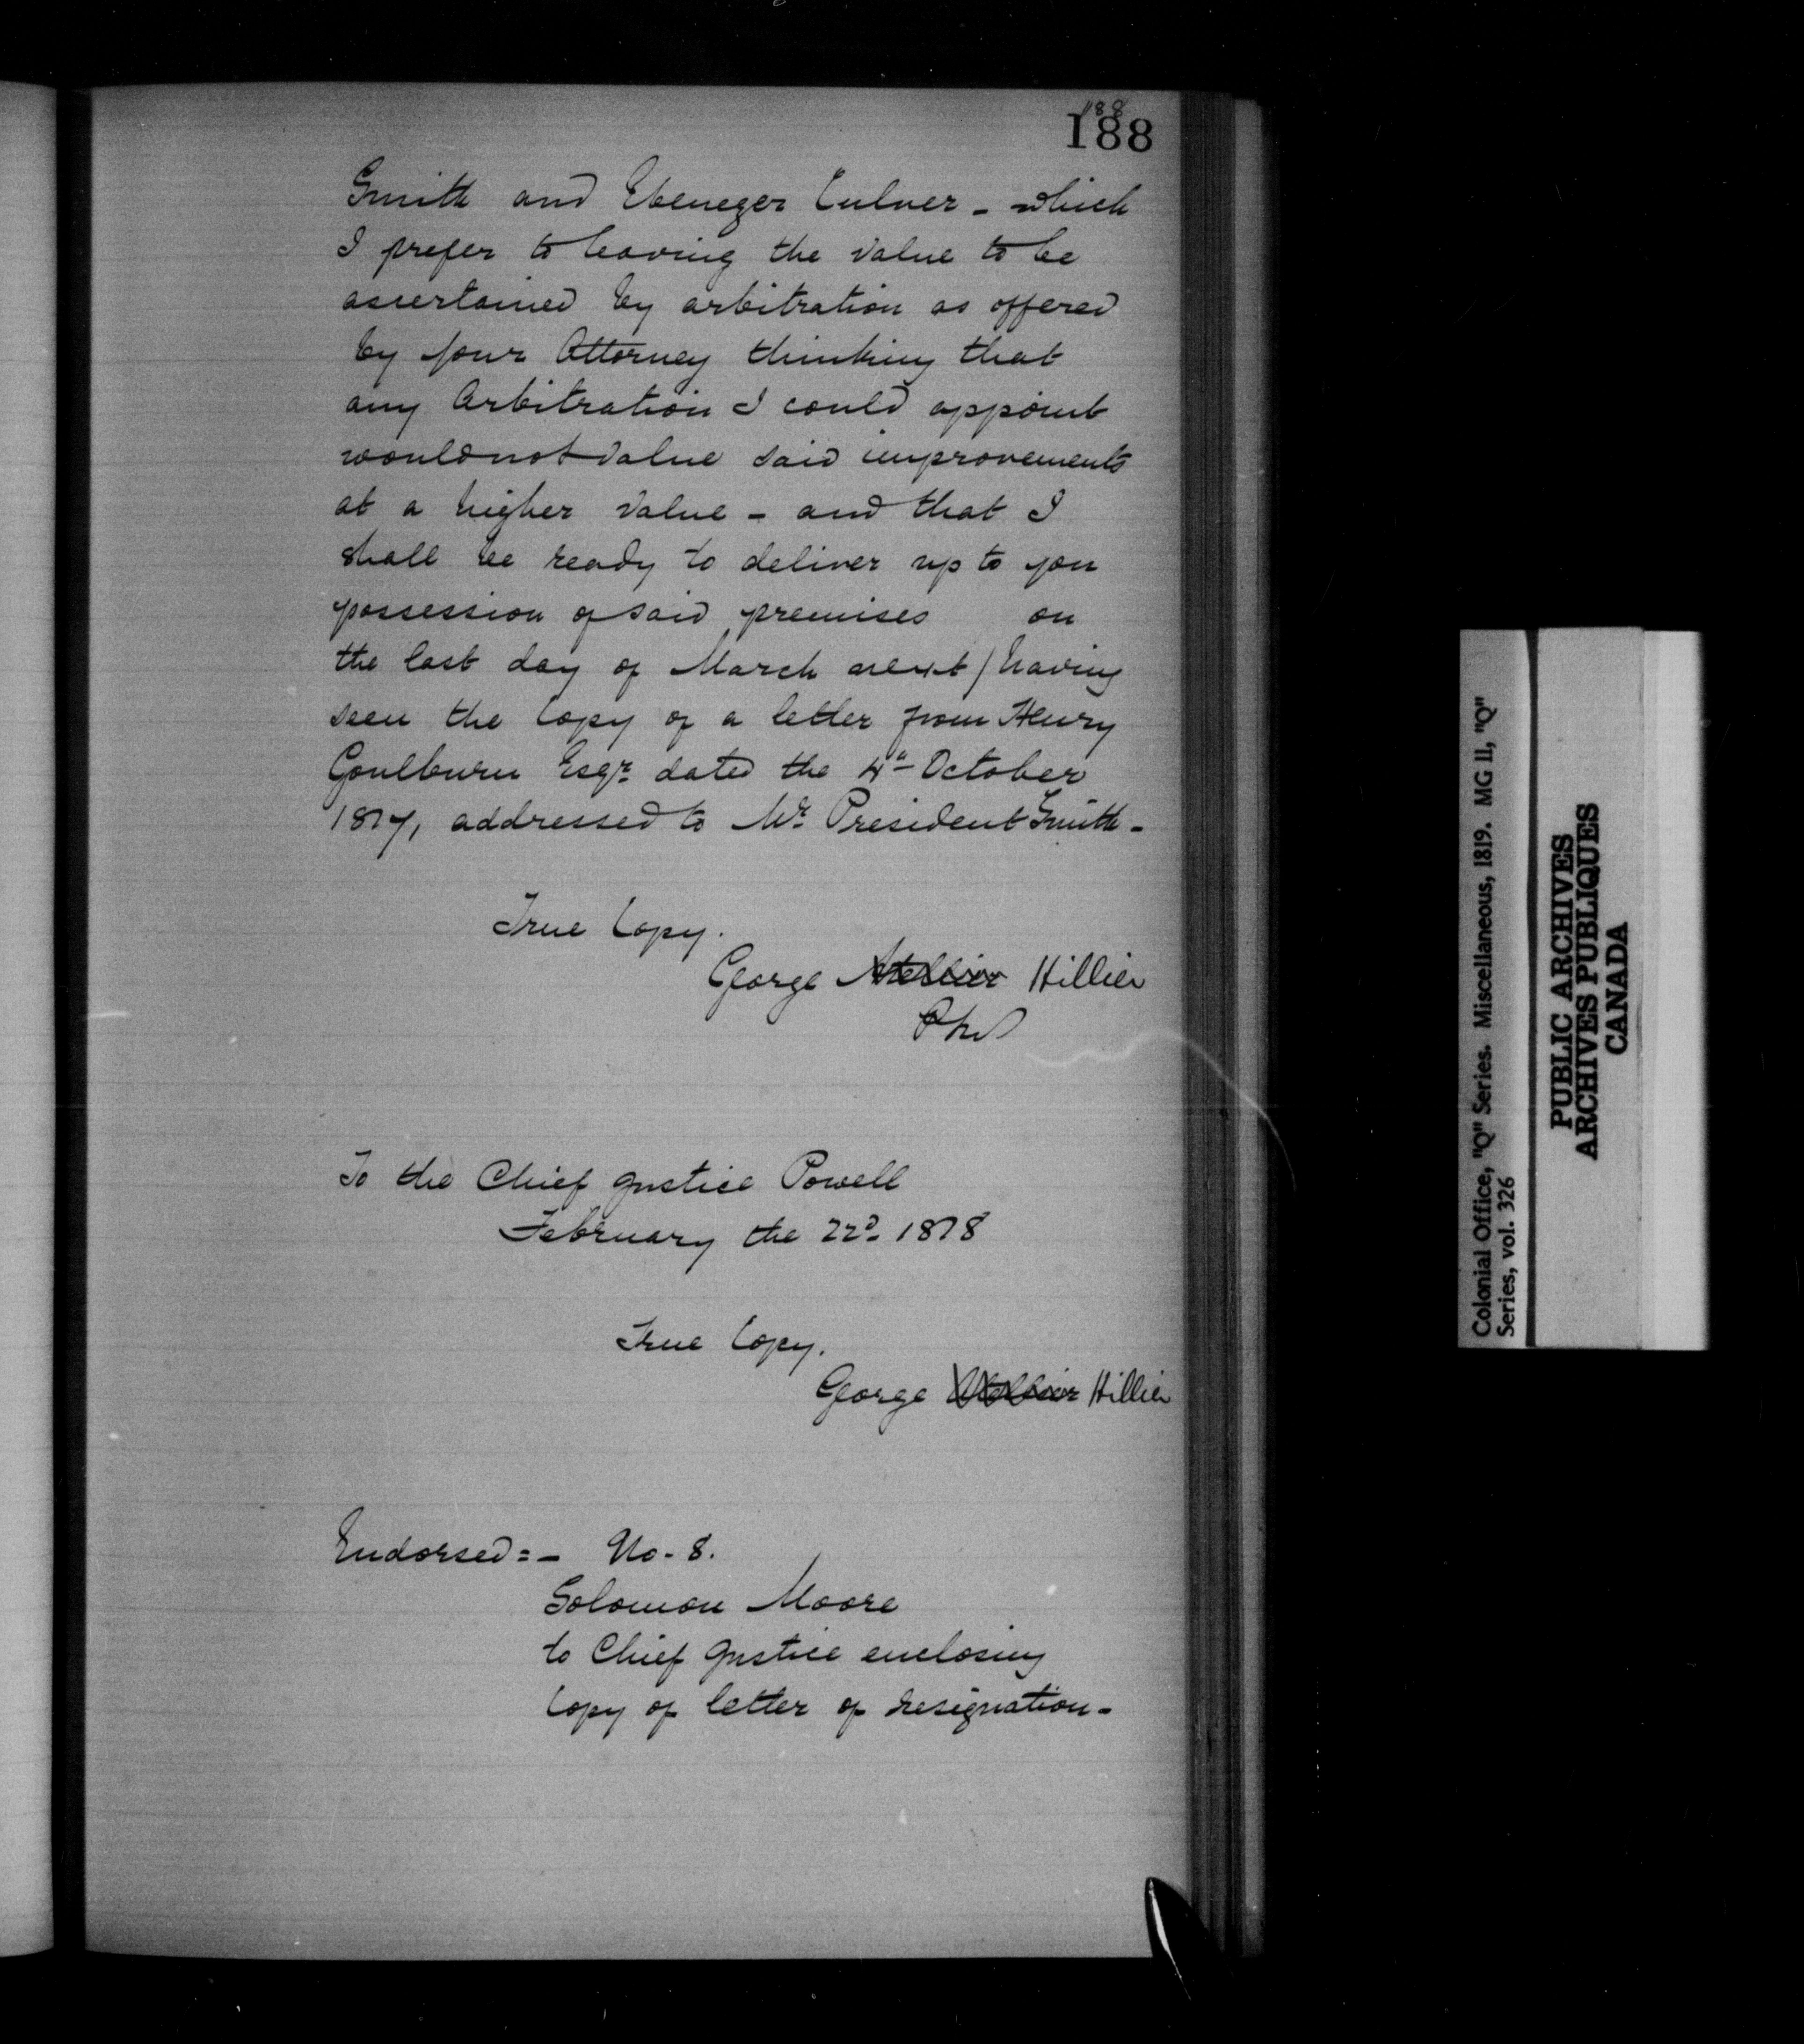 188
188
Smith and Ebenezer Culver - which
I prefer to leaving the value to be
ascertained by arbitration as offered
by your Attorney thinking that
any Arbitration I could appoint
would not value said improvements
at a higher value - and that I
shall be ready to deliver up to you
possession of said premises on
the last day of March next / having
seen the Copy of a letter from Henry
Goulburn Esqr. dated the 4th October
1817, addressed to Mr. President Smith -
True Copy.
George Hillier
To the Chief Justice Powell
February the 22d. 1818
True Copy.
George Hillier
Endorsed :- No. 8.
Solomon Moore
to Chief Justice enclosing
Copy of letter of resignation -
Colonial Office, "Q" Series. Miscellaneous, 1819. MG 11, "Q"
Series, vol. 326
PUBLIC ARCHIVES
ARCHIVES PUBLIQUES
CANADA